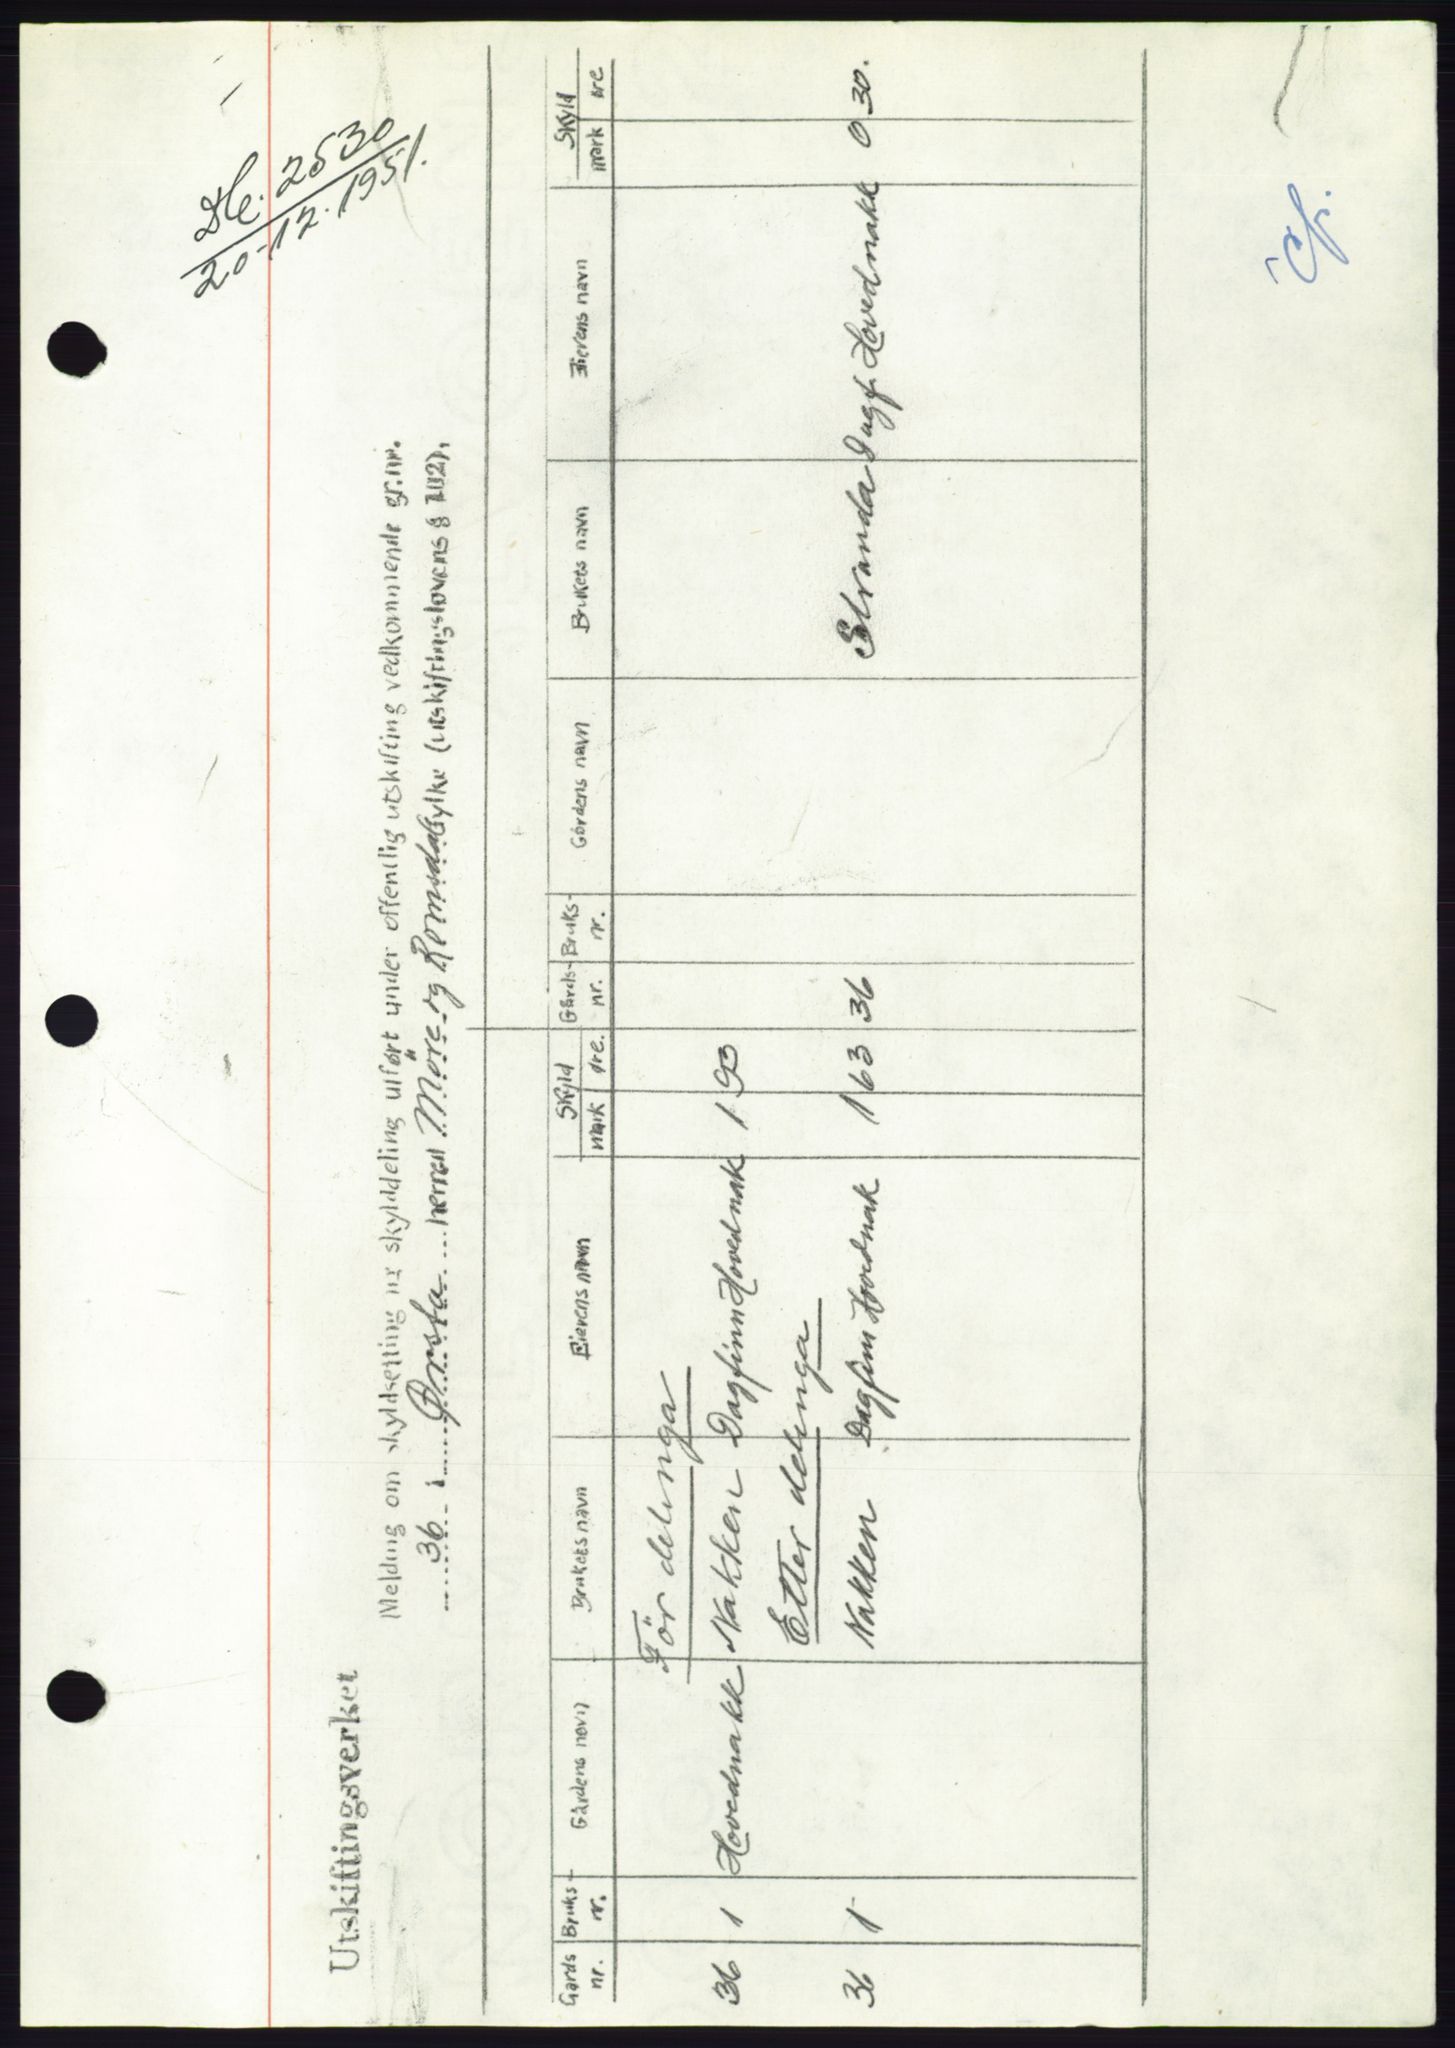 Utskiftingsverket
Dbf. 2530
20-12-1951.
Melding om skyldsetting og skylddeling utført under offentlig utskifting vedkommende gr.nr.
36 i Ørsta herred Möre og Romsdal fylke (utskiftingslovens § 102).
Gards nr. Bruks- nr. Gårdens navn Brukets navn Eierens navn Skyld mark øre. Gårds- nr. Bruks- nr. Gårdens navn Brukets navn Eierens navn Skyld mark øre
För delinga
36 1 Hovednakk Nakken Dagfinn Hovednak 1 93
Etter delinga
36 1 Nakken Dagfinn Hovednak 1 63 36 Stranda Dagf. Hovednakk 0 30.